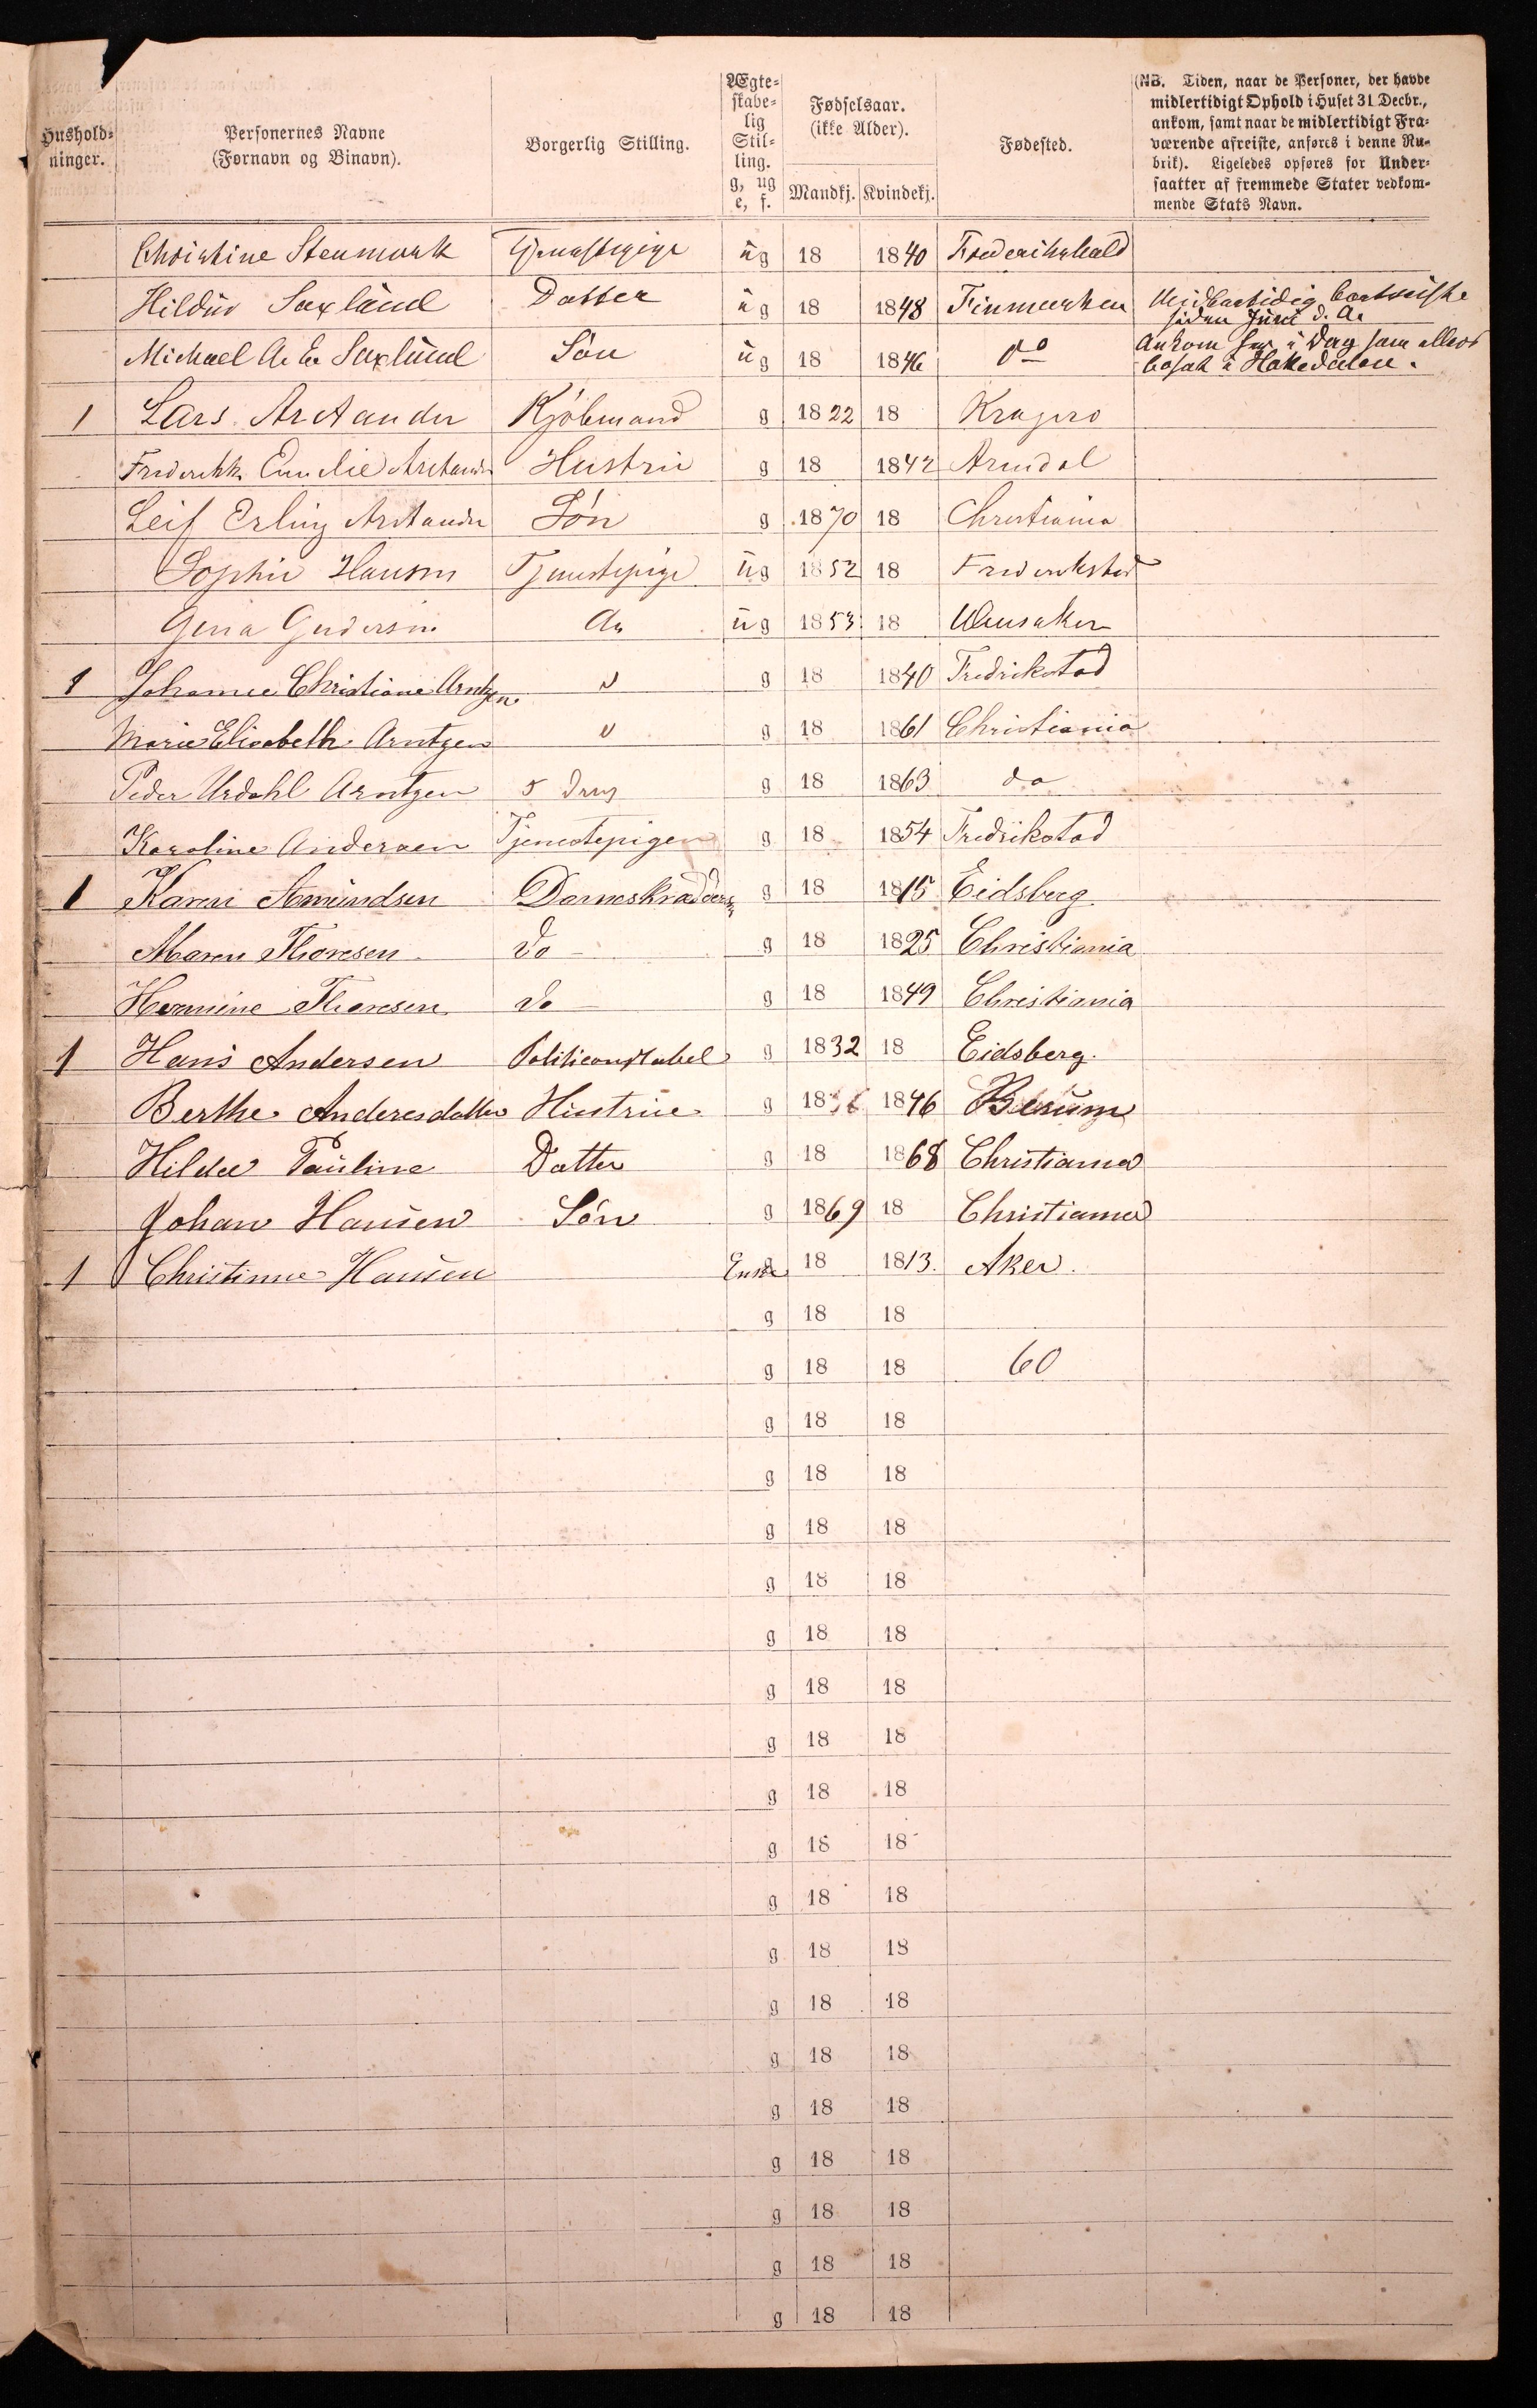 Hushold-
ninger.
Personernes Navne
(Fornavn og Binavn).
Borgerlig Stilling.
Ægte-
skabe-
lig
Stil-
ling.
g, ug
e, f.
Fødselsaar.
(ikke Alder).
Mandkj. Kvindekj.
Fødested.
(NB. Tiden, naar de Personer, der havde
midlertidigt Ophold i Huset 31 Decbr.,
ankom, samt naar de midlertidigt Fra-
værende afreiste, anføres i denne Ru-
brik). Ligeledes opføres for Under-
saatter af fremmede Stater vedkom-
mende Stats Navn.
Christine Stenmark Tjenestepige ug 18 1840 Frederikshald
Hildur Saxlund Datter ug 18 1848 Finmarken
siden Juni d. A.
Michael A. E. Saxlund Søn ug 18 1846 do
Ankom i Dag som ellers
bosat i Hakedalen.
1 Lars Arctander Kjøbmand g 1822 18 Kragerø
Emelie Arctander Hustru g 18 1842 Arendal
Leif Erling Arctander Søn g 1870 18 Christiania
Sophie Hansen Tjenestepige ug 1852 18 Frederikstad
Gina ug 1853 18 Ullensaker
1 Johanne Christiane Arntzen g 18 1840 Fredrikstad
Marie Elisabeth Arntzen g 18 1861 Christiania
Peder Urdahl Arntzen g 18 1863 do
Karoline Andersen Tjenestepigen g 18 1854 Fredrikstad
1 Karen Amundsen g 18 1815 Eidsberg.
Maren Thoresen do g 18 1825 Christiania
Hermine Thoresen do g 18 1849 Christiania
1 Hans Andersen Politiconstabel g 1832 18 Eidsberg.
Berthe Andersdatter Hustrue g 1846 Berum
Hilda Pauline Datter g 18 1868 Christiania
Johan Hansen Søn g 1869 18 Christiania
1 Christinne Hansen Enke g 18 1813. Aker.
g 18 18
g 18 18 60
g 18 18
g 18 18
g 18 18
g 18 18
g 18 18
g 18 18
g 18 18
g 18 18
g 18 18
g 18 18
g 18 18
g 18 18
g 18 18
g 18 18
g 18 18
g 18 18
g 18 18
g 18 18